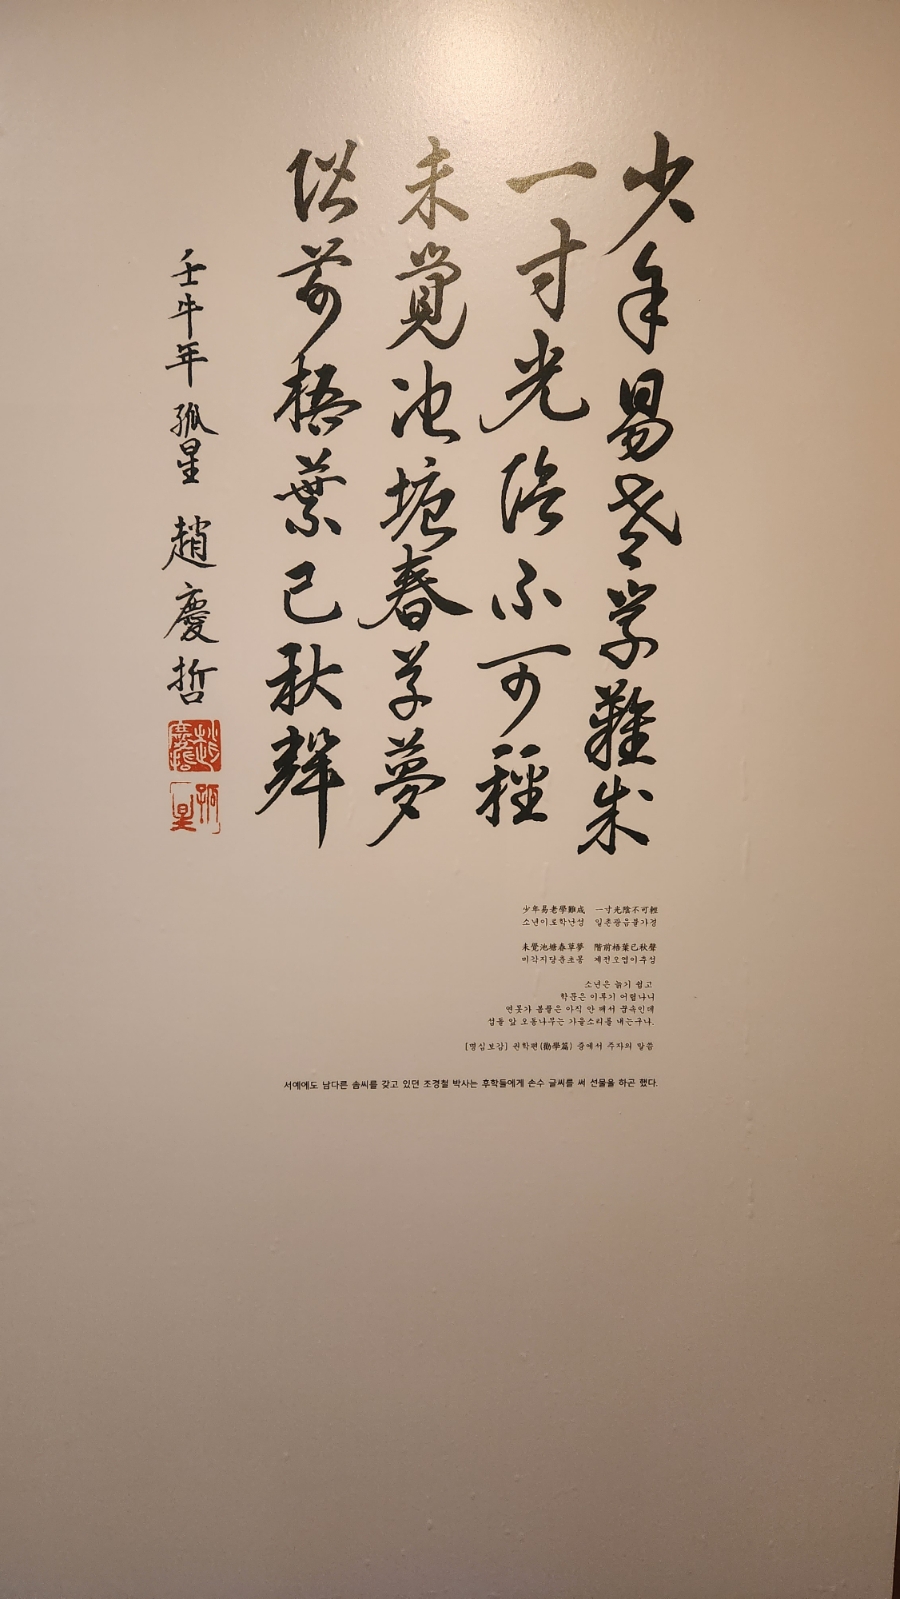 少年易老学難成
一寸光陰不可輕
未覺池塘春草夢
階前梧葉已秋聲
壬午年 孤星 趙慶哲
趙慶哲
孤星
少年易老學難成 一寸光陰不可輕
소년이로학난성 일촌광음불가경
未覺池塘春草夢 階前梧葉已秋聲
미각지당춘초몽 계전오엽이추성
소년은 늙기 쉽고
학문은 이루기 어렵나니
연못가 봄풀은 아직 안 깨서 꿈속인데
섬돌 앞 오동나무는 가을소리를 내는구나.
[명심보감] 권학편(勸學篇) 중에서 주자의 말씀
서예에도 남다른 솜씨를 갖고 있던 조경철 박사는 후학들에게 손수 글씨를 써 선물을 하곤 했다.